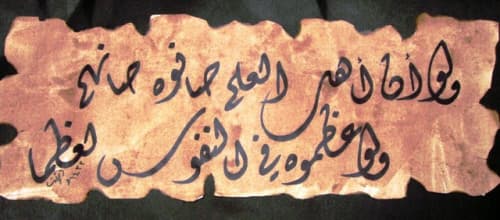 ولو أن أهل العلم صانوه صانهم
ولو عظموه في النفوس لعظما